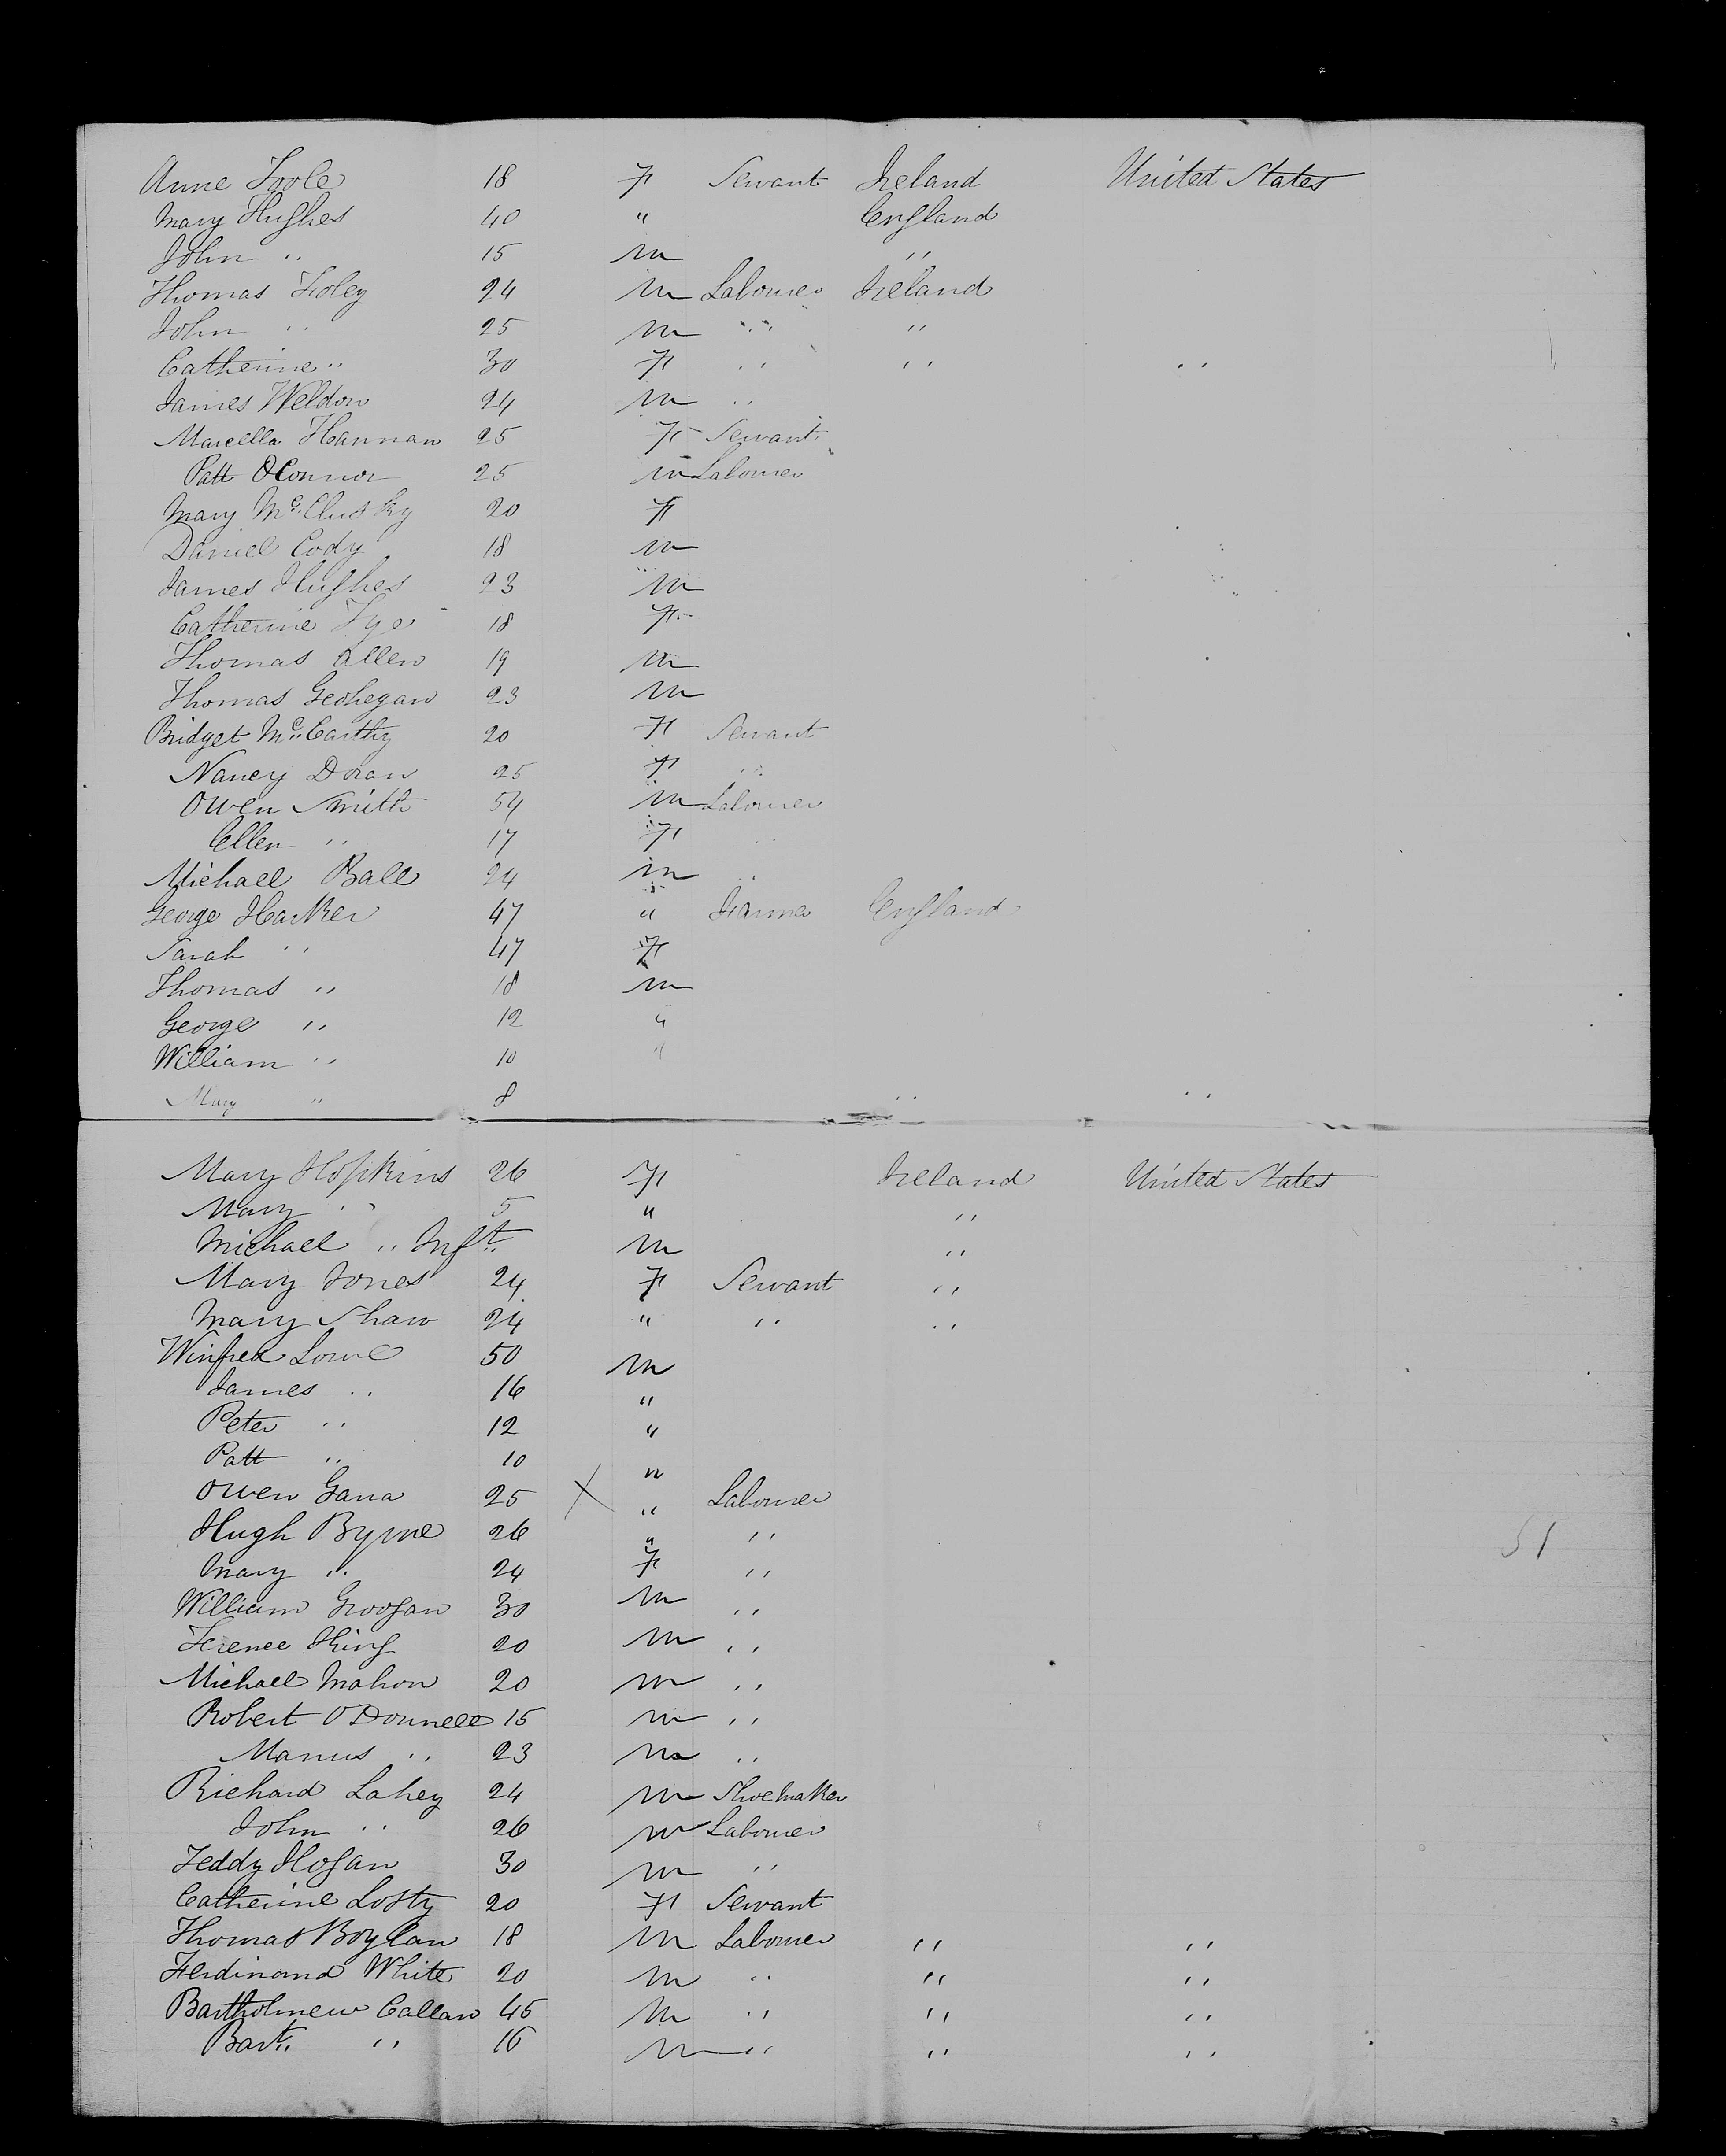 Anne Toole 18 F Servant Ireland United States
Mary Hughes 40 " England
John " 15 M "
Thomas Foley 24 M Labourer Ireland
John " 25 M " "
Catherine " 30 F " " "
James Weldon 24 M "
Marcella Hannan 25 F Servant
Patt OConnor 25 M Labourer
Mary McClusky 20 F
Daniel Cody 18 M
James Hughes 23 M
Catherine Tye 18 F
Thomas Allen 19 M
Thomas Geohegan 23 M
Bridget McCarthy 20 F Servant
Nancy Doran 25 F "
Owen Smith 54 M Labourer
Ellen " 17 F
Michael Ball 24 M "
George Harker 47 " Farmer England
Sarah " 47 F
Thomas " 18 M
George " 12 "
William " 10 "
Mary " 8 " "
Mary Hopkins 26 F Ireland United States
Mary " 5 " "
Michael " Inft M "
Mary Jones 24 F Servant "
Mary Shaw 24 " " "
Winfred Lowe 50 M
James " 16 "
Peter " 12 "
Patt " 10 "
Owen Gana 25 X " Labourer
Hugh Byrne 26 " " 51
Mary " 24 F "
William Groogan 30 M "
Terence King 20 M "
Michael Mahon 20 M "
Robert O'Donnell 15 M "
Manus " 23 M "
Richard Lahey 24 M Shoemaker
John " 26 M Labourer
Teddy Hogan 30 M "
Catherine Losty 20 F Servant
Thomas Boylan 18 M Labourer " "
Ferdinand White 20 M " " "
Bartholmew Callan 45 M " " "
Bart. " 16 M " " "